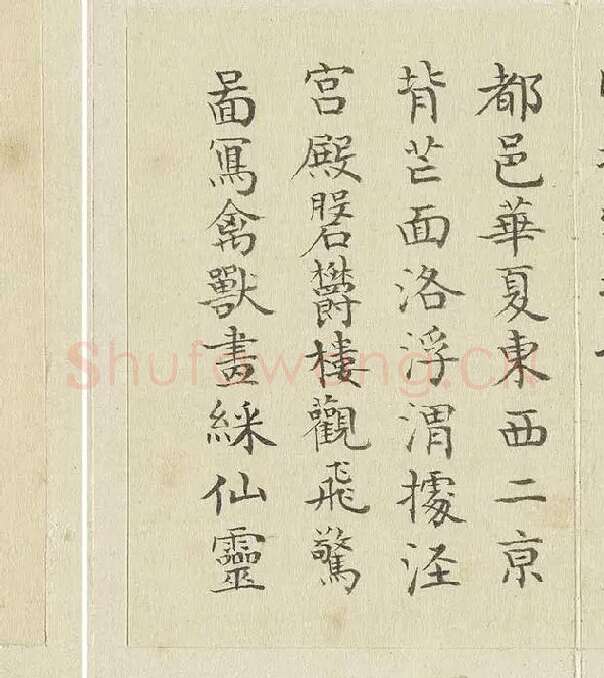 都邑華夏東西二京
背芒面洛浮渭據泾
宮殿磐欝楼觀飛驚
啚寫禽獸畫綵仙靈
Shufawang.cn